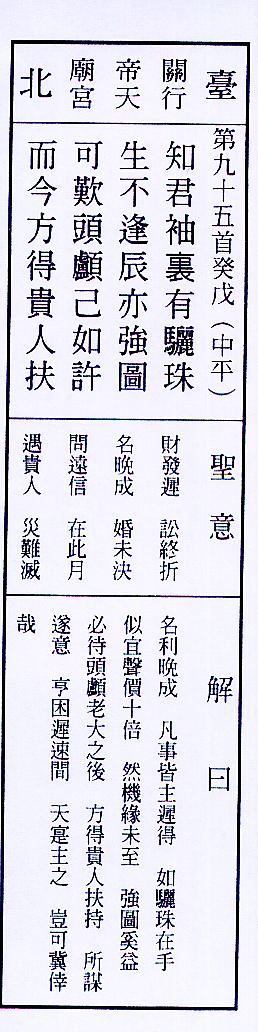 臺北
關行
帝天
廟宮
第九十五首癸戊（中平）
知君袖裏有驪珠
生不逢辰亦強圖
可歎頭顱己如許
而今方得貴人扶
聖意
財發遲　訟終折
名晚成　婚未決
問遠信　在此月
遇貴人　災難滅
解曰
名利晚成　凡事皆主遲得　如驪珠在手
似宜聲價十倍　然機緣未至　強圖奚益
必待頭顱老大之後　方得貴人扶持　所謀
遂意　亨困遲速間　天寔主之　豈可冀倖
哉